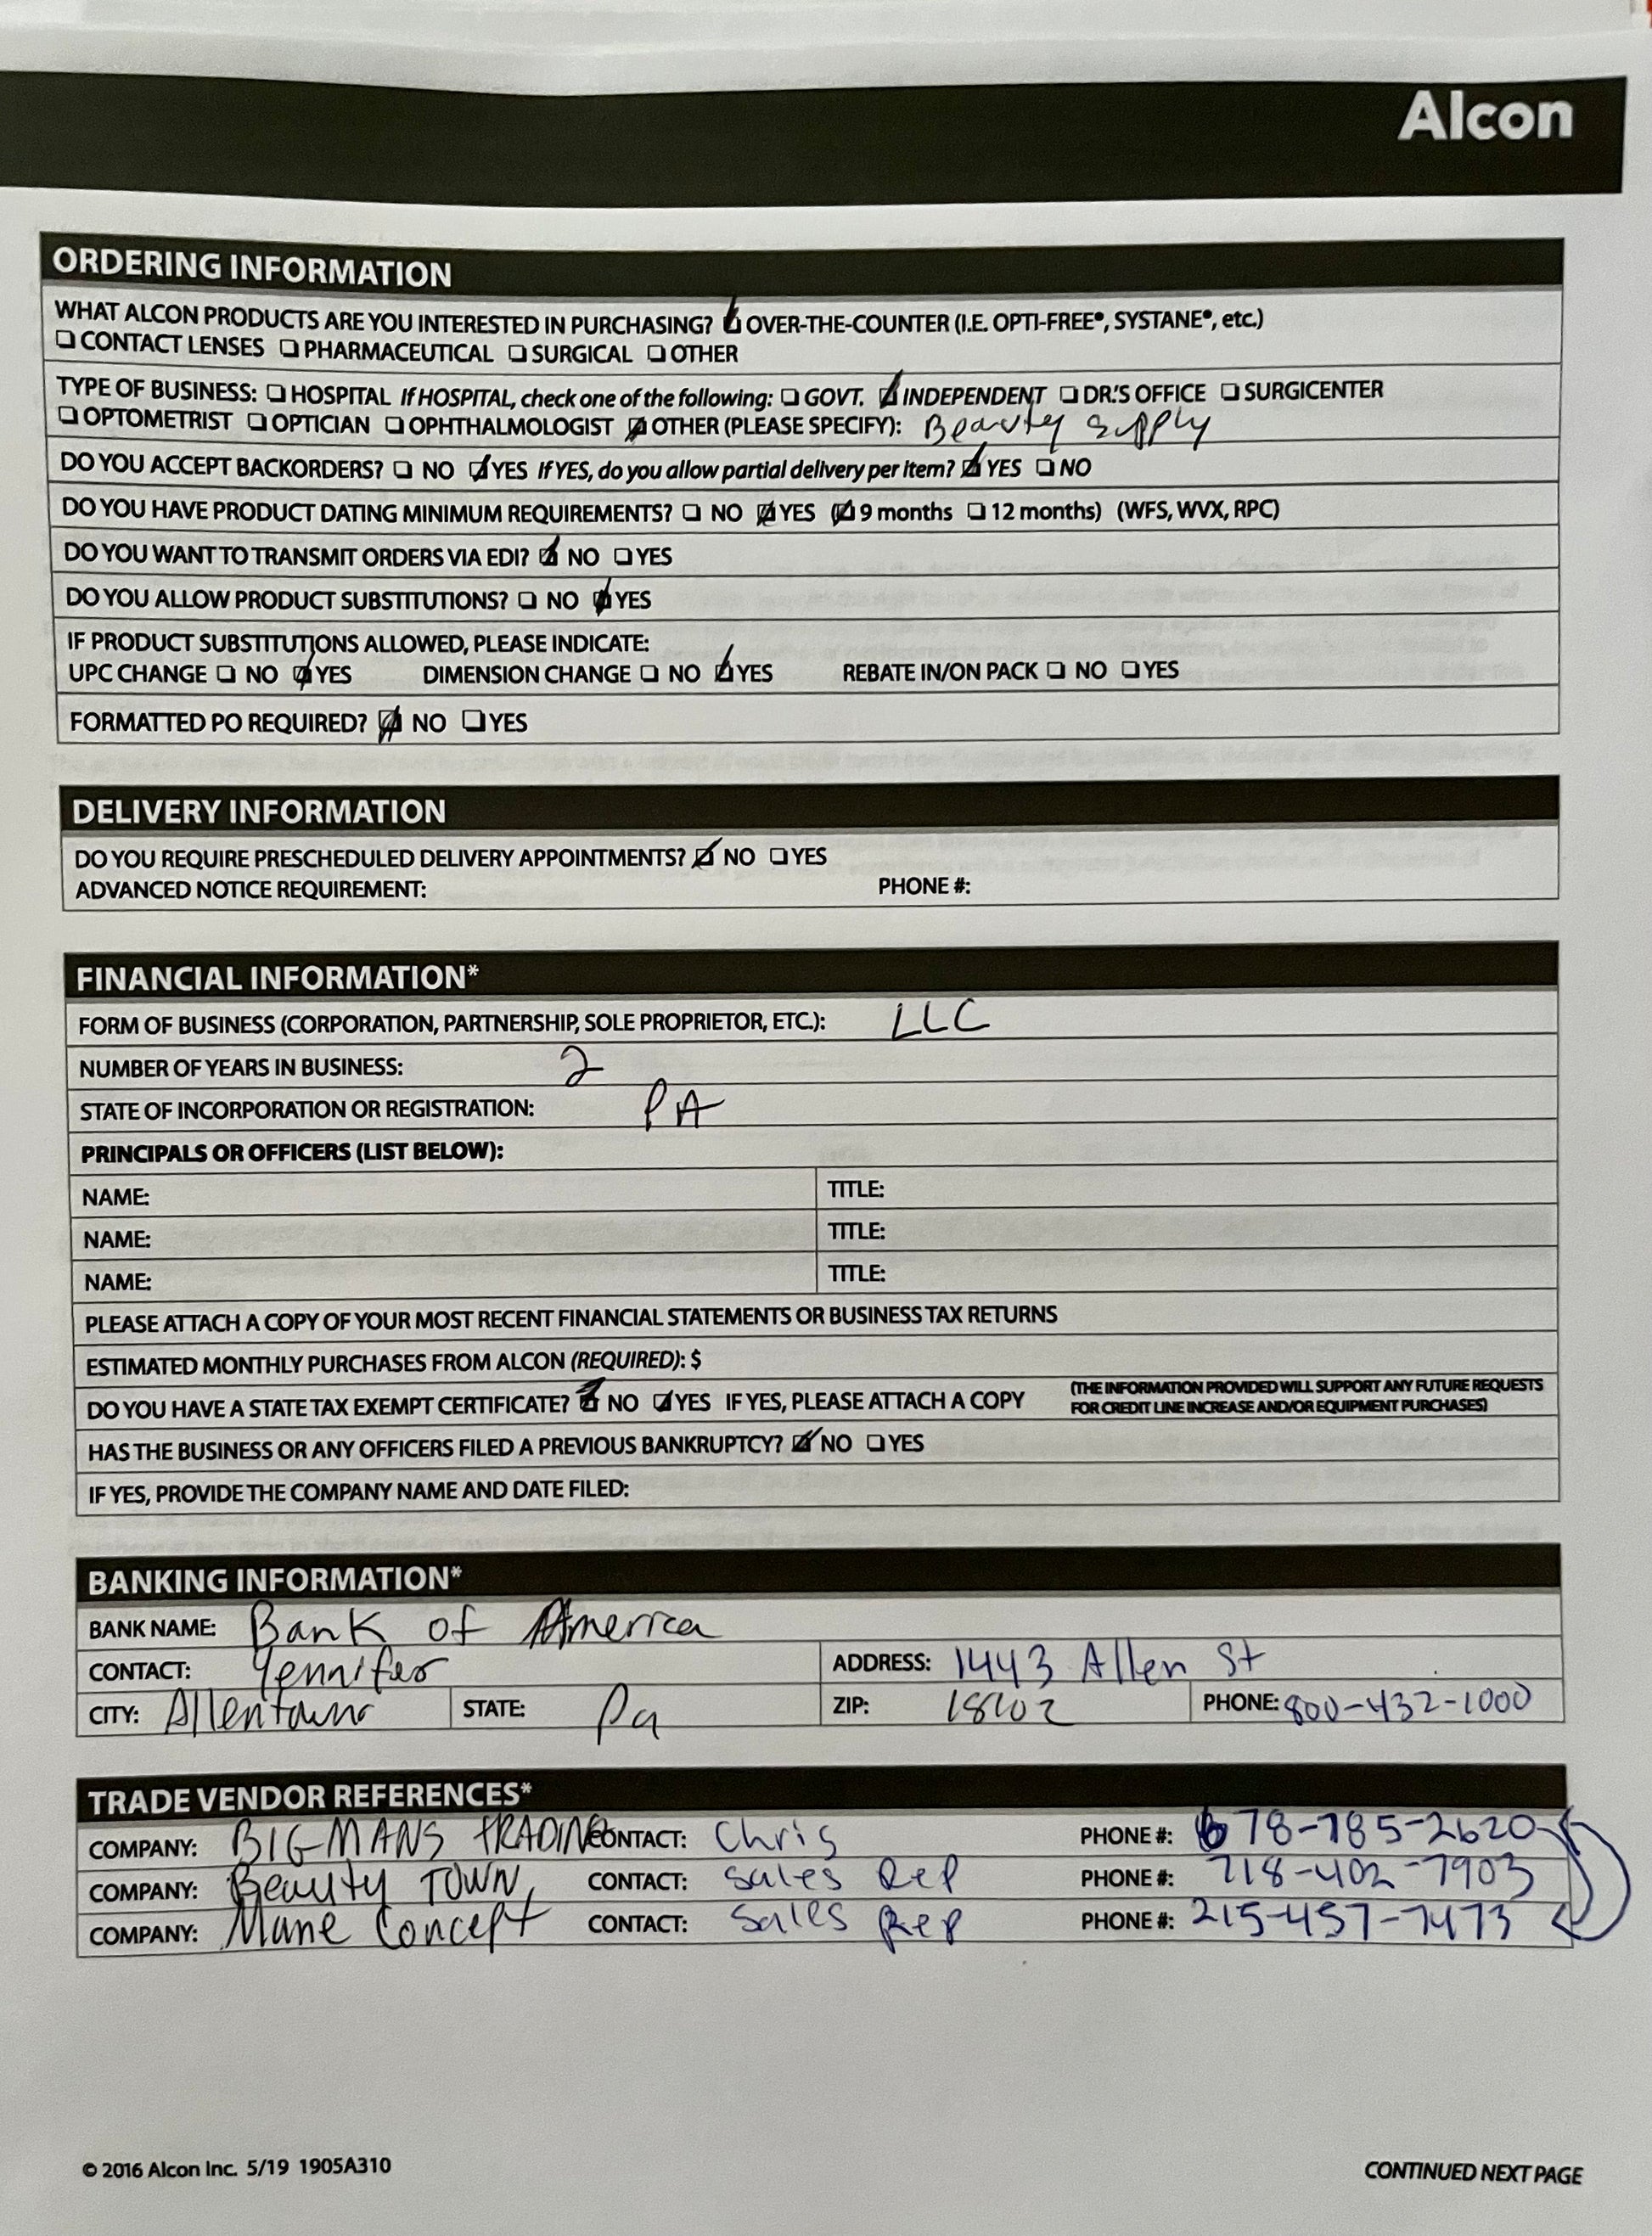 Alcon
ORDERING INFORMATION
WHAT ALCON PRODUCTS ARE YOU INTERESTED IN PURCHASING? ☑ OVER-THE-COUNTER (I.E. OPTI-FREE®, SYSTANE®, etc.)
❑ CONTACT LENSES ❑ PHARMACEUTICAL ❑ SURGICAL ❑ OTHER
TYPE OF BUSINESS: ❑ HOSPITAL If HOSPITAL, check one of the following: ❑ GOVT. ☑ INDEPENDENT ❑ DR.'S OFFICE ❑ SURGICENTER
❑ OPTOMETRIST ❑ OPTICIAN ❑ OPHTHALMOLOGIST ☑ OTHER (PLEASE SPECIFY): Beauty Supply
DO YOU ACCEPT BACKORDERS? ❑ NO ☑ YES If YES, do you allow partial delivery per item? ☑ YES ❑ NO
DO YOU HAVE PRODUCT DATING MINIMUM REQUIREMENTS? ❑ NO ☑ YES (☑ 9 months ❑ 12 months) (WFS, WVX, RPC)
DO YOU WANT TO TRANSMIT ORDERS VIA EDI? ☑ NO ❑ YES
DO YOU ALLOW PRODUCT SUBSTITUTIONS? ❑ NO ☑ YES
IF PRODUCT SUBSTITUTIONS ALLOWED, PLEASE INDICATE:
UPC CHANGE ❑ NO ☑ YES DIMENSION CHANGE ❑ NO ☑ YES REBATE IN/ON PACK ❑ NO ❑ YES
FORMATTED PO REQUIRED? ☑ NO ❑ YES
DELIVERY INFORMATION
DO YOU REQUIRE PRESCHEDULED DELIVERY APPOINTMENTS? ☑ NO ❑ YES
ADVANCED NOTICE REQUIREMENT: PHONE #:
FINANCIAL INFORMATION*
FORM OF BUSINESS (CORPORATION, PARTNERSHIP, SOLE PROPRIETOR, ETC.): LLC
NUMBER OF YEARS IN BUSINESS: 2
STATE OF INCORPORATION OR REGISTRATION: PA
PRINCIPALS OR OFFICERS (LIST BELOW):
NAME: TITLE:
NAME: TITLE:
NAME: TITLE:
PLEASE ATTACH A COPY OF YOUR MOST RECENT FINANCIAL STATEMENTS OR BUSINESS TAX RETURNS
ESTIMATED MONTHLY PURCHASES FROM ALCON (REQUIRED): $
DO YOU HAVE A STATE TAX EXEMPT CERTIFICATE? ☑ NO ☑ YES IF YES, PLEASE ATTACH A COPY (THE INFORMATION PROVIDED WILL SUPPORT ANY FUTURE REQUESTS
FOR CREDIT LINE INCREASE AND/OR EQUIPMENT PURCHASES)
HAS THE BUSINESS OR ANY OFFICERS FILED A PREVIOUS BANKRUPTCY? ☑ NO ❑ YES
IF YES, PROVIDE THE COMPANY NAME AND DATE FILED:
BANKING INFORMATION*
BANK NAME: Bank of America
CONTACT: Jennifer ADDRESS: 1443 Allen St
CITY: Allentown STATE: Pa ZIP: 18102 PHONE: 800-432-1000
TRADE VENDOR REFERENCES*
COMPANY: BIGMANS TRADING CONTACT: Chris PHONE #: 678-785-2620
COMPANY: Beauty TOWN, CONTACT: Sales Rep PHONE #: 718-402-7903
COMPANY: Mane Concept CONTACT: Sales Rep PHONE #: 215-457-7473
© 2016 Alcon Inc. 5/19 1905A310
CONTINUED NEXT PAGE